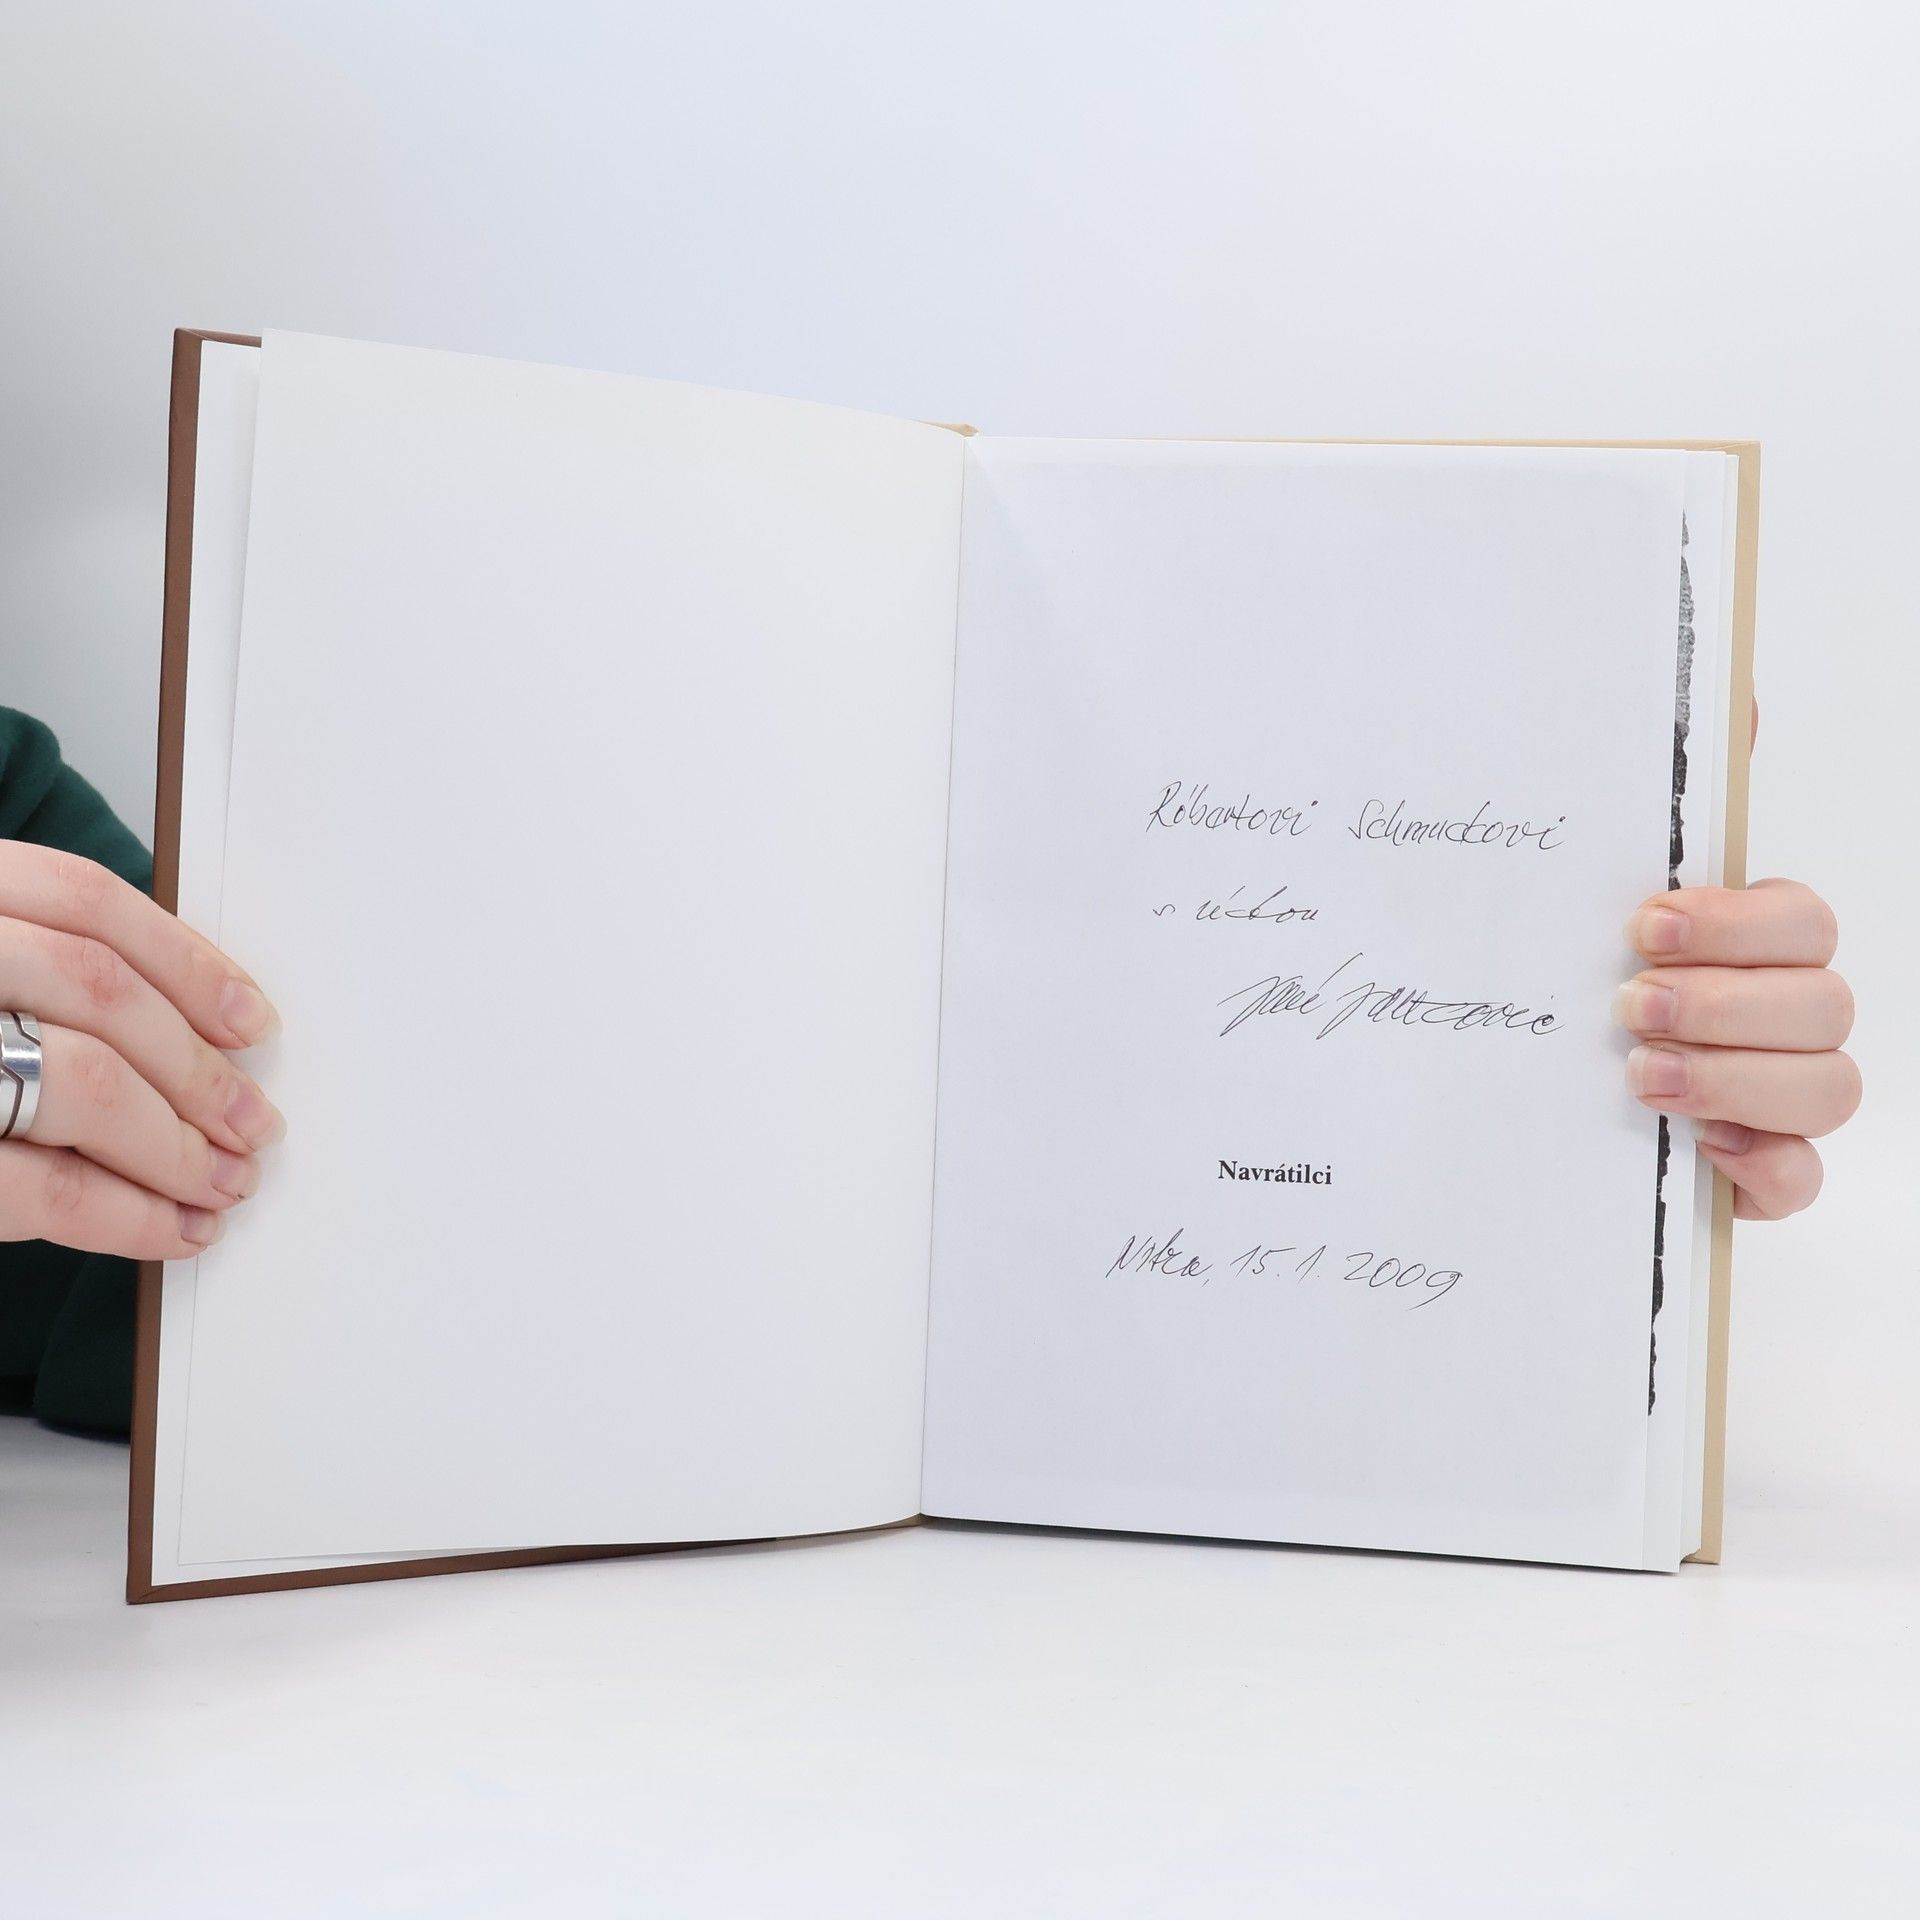 Róbertovi Schmuckovi
s úctou
Navrátilci
Nitra, 15. 1. 2009